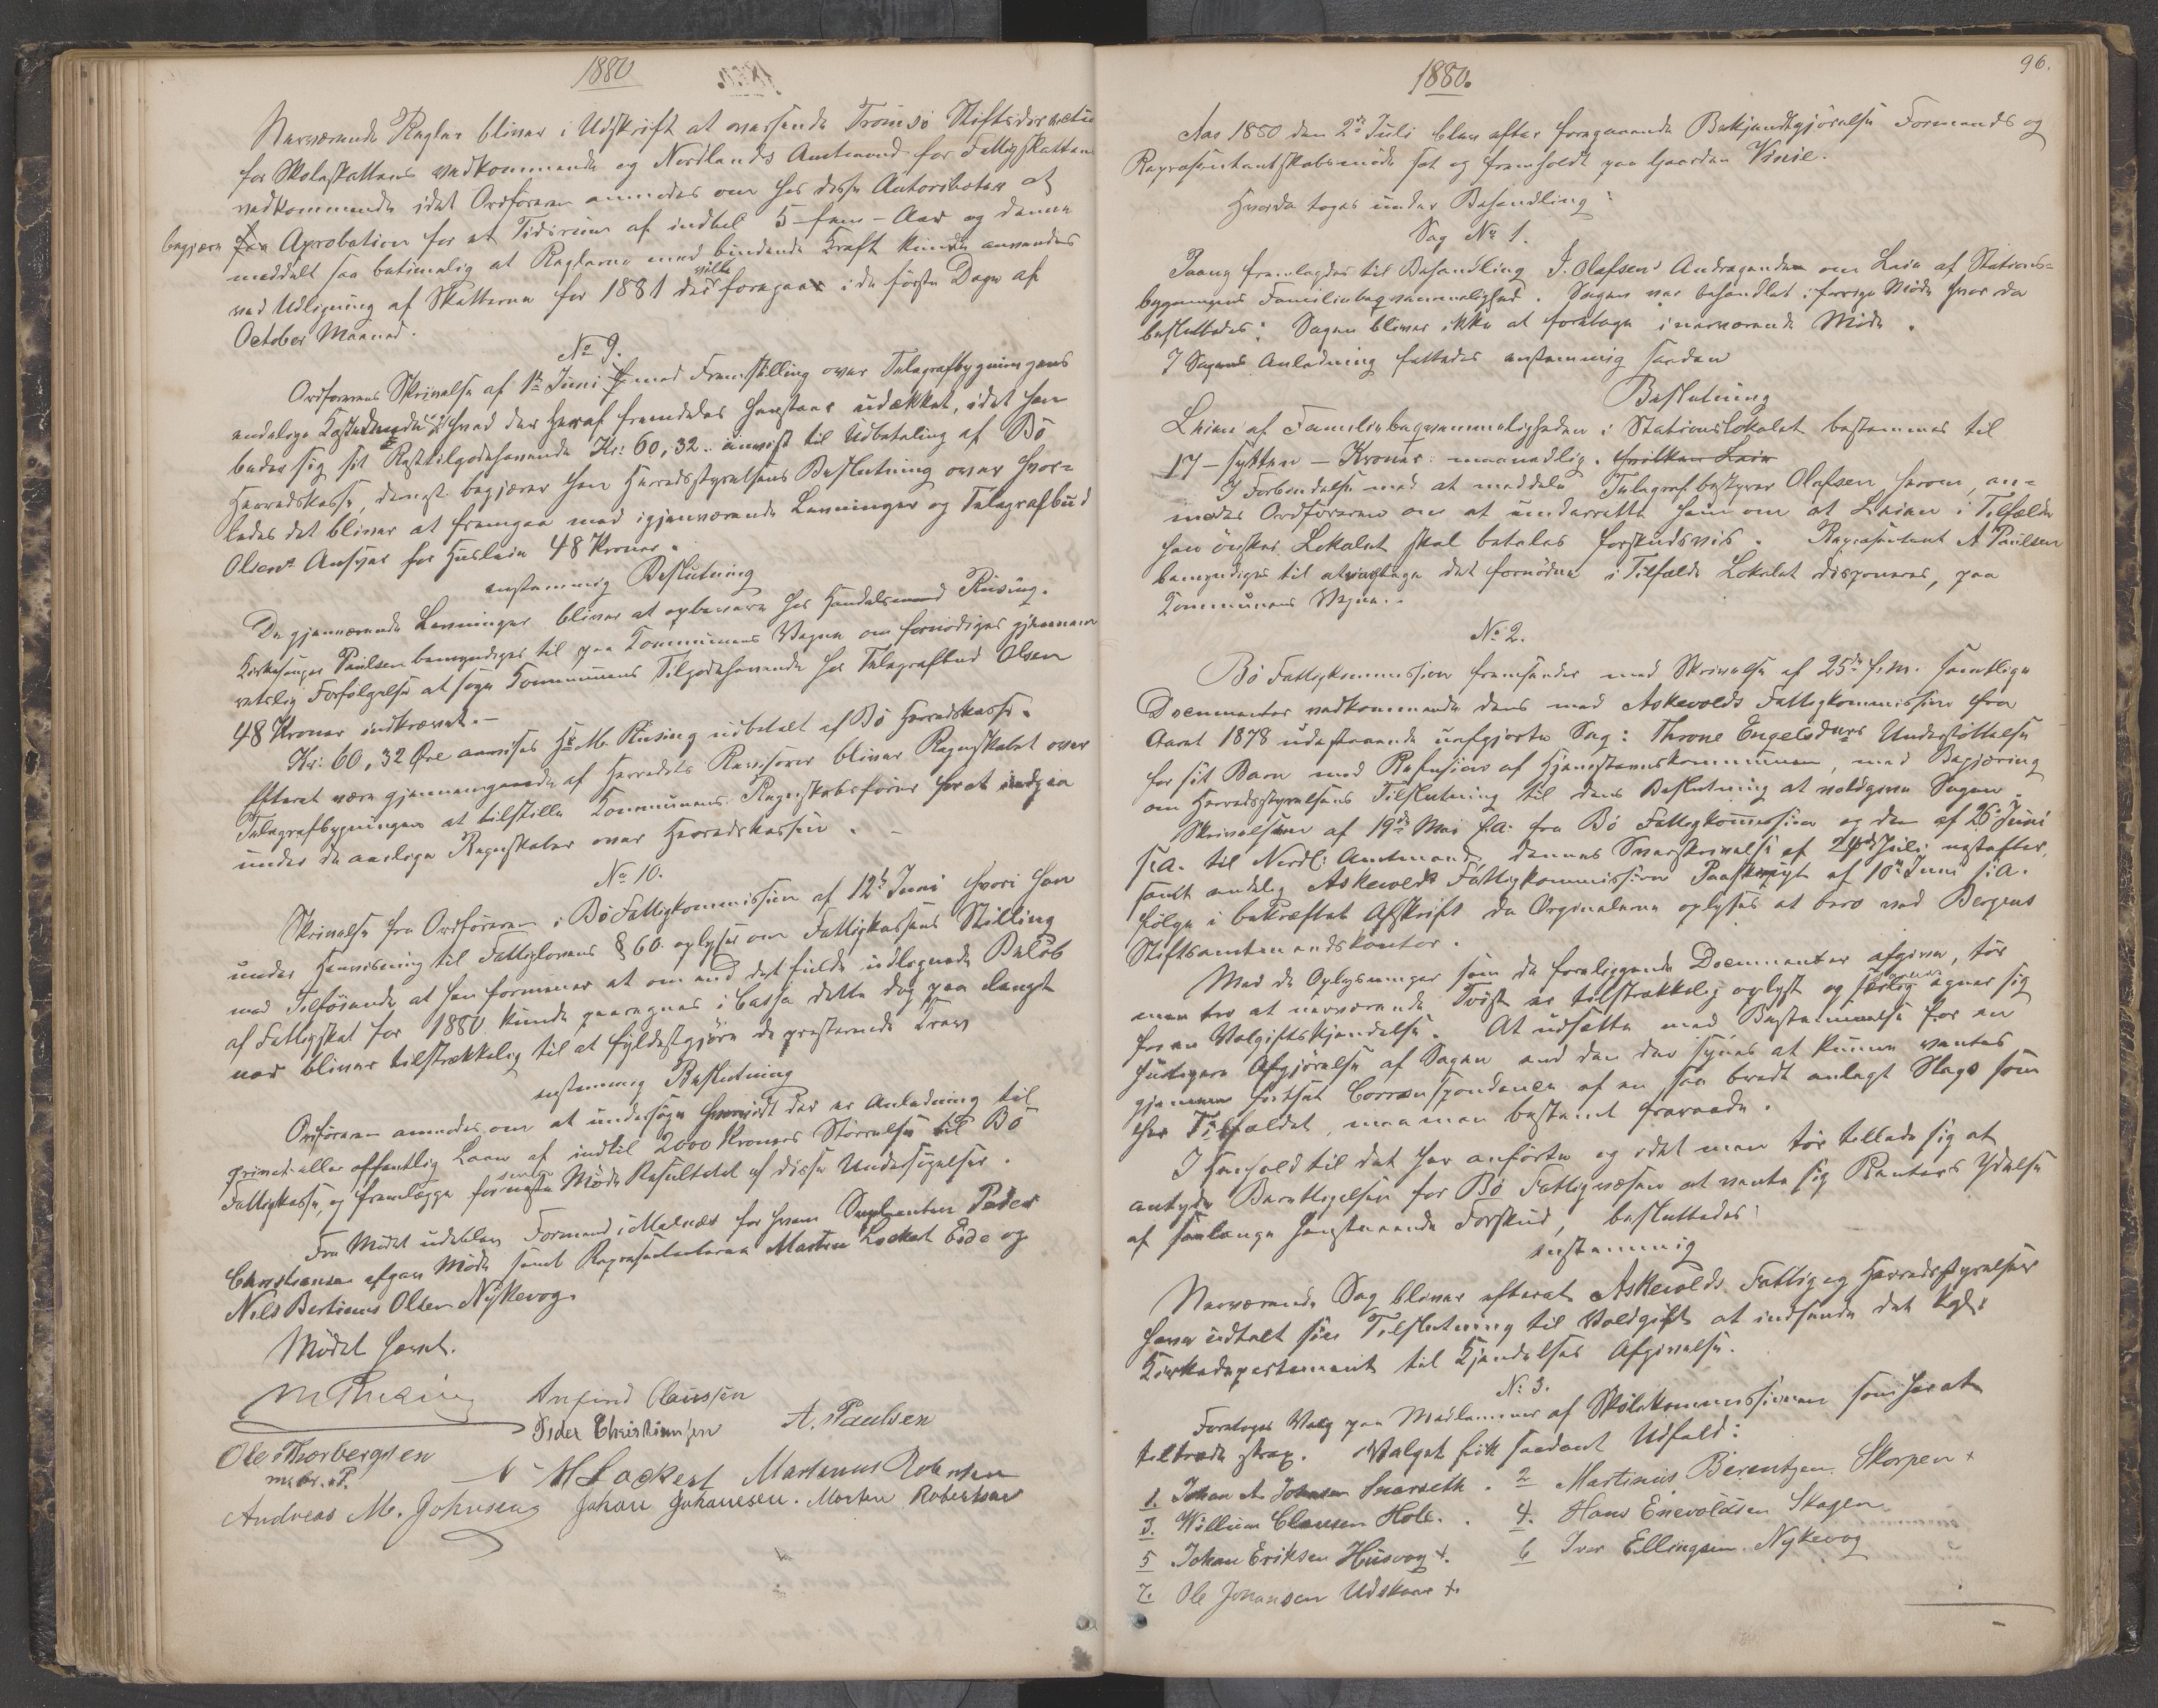 1880
Nærværende Regler bliver i Udskrift at oversende Tromsø Stiftsdirection
for Skoleskattens vedkommende og Nordlands Amtmand for Fattigskattens
vedkommende idet Ordføreren anmodes om hos disse Autoriteter at
begjære Aprobation for et Tidsrum af indtil 5 – fem – Aar og denne
meddelt saa betimelig at Reglerne med bindende Kraft kunde anvendes
ved Udligning af Skatterne for 1881 der vilde foregaa i de første Dage af
October Maaned.
No 9.
Ordførerens Skrivelse af 1ste Juni med Fremstilling over Telegrafbygningens
endelige Kostende, hvad der heraf fremdeles henstaar udækket, idet han
beder sig sit Resttilgodehavende Kr: 60,32.. anvist til Udbetaling af Bø
Herredskasse, dernæst begjærer han Herredsstyrelsens Beslutning over hvor-
ledes det bliver at fremgaa med igjenværende Levninger og Telegrafbud
Olsens Ansvar for Husleie 48 Kroner.
enstemmig Beslutning
De gjenværende Levninger bliver at opbevare hos Handelsmand Riksing.
Kirkesanger Paulsen bemyndiges til paa Kommunens Vegne om fornødiges gjennem
retslig Forfølgelse at søge Kommunens Tilgodehavende hos Telegrafbud Olsen
48 Kroner inddrevet. –
Kr: 60,32 Øre anvises Hr M. Riksing udbetalt af Bø Herredskasse.
Efterat være gjennemgaaede af Herredets Revisorer bliver Regnskabet over
Telegrafbygningen at tilstille Kommunens Regnskabsfører for at indgaa
under de aarlige Regnskaber over Herredskassen. –
No 10.
Skrivelse fra Ordføreren i Bø Fattigkommission af 12te Juni hvori han
under Henvisning til Fattiglovens § 60 oplyser om Fattigkassens Stilling
med Tilføiende at han formener at om end det fulde udlignede Beløb
af Fattigskat for 1880 kunde paaregnes i Cassa dette dog paa langt
nær bliver tilstrækkelig til at fyldestgjøre de præsterende Krav
enstemmig Beslutning
Ordføreren anmodes om at undersøge hvorvidt der er Anledning til
privat eller offentlig Laan af indtil 2000 Kroners Størrelse til Bø
Fattigkasse, og fremlægge for næste Møde Resultatet af disse Undersøgelser.
Fra Mødet udeblev Formand i Malnes for hvem Suplenten Peder
Christiansen afgav Møde samt Repræsentanterne Martin Lockert Eide og
Nils Bertinus Olsen Nykevog.
Mødet hævet.
Arnfind Claussen
Peder Christiansen A. Paulsen
Ole Thorbergsen
m. p. P.
N H Lockert Martinus Robertsen
Andreas M. Johnsen Johan Johanesen. Morten Robertsen
96.
1880.
Aar 1880 den 2de Juli blev efter foregaaende Bekjendtgjørelse Formands og
Repræsentantskabsmøde sat og fremholdt paa Gaarden Vinie.
Hvorda toges under Behandling:
Sag No 1.
Paany fremlagdes til Behandling J. Olafsens Andragende om Leie af Stations-
bygningens Familiebeqvemmelighed. Sagen var behandlet i forrige Møde hvor da
besluttedes: Sagen bliver ikke at foretage i nærværende Møde.
I Sagens Anledning fattedes enstemmig saadan
Beslutning
Leien af Familiebeqvemmeligheden i Stationslokalet bestemmes til
17 – sytten – Kroner maanedlig. hvilken Leie
I Forbindelse med at meddele Telegrafbestyrer Olafsen herom, an-
modes Ordføreren om at underrette ham om at Leien i Tilfælde
han ønsker Lokalet skal betales forskudsvis. Repræsentant A Paulsen
bemyndiges til at iagttage det fornødne i Tilfælde Lokalet disponeres, paa
Kommunens Vegne. –
No 2.
Bø Fattigkommission fremsender med Skrivelse af 25de f.m. samtlige
Documenter vedkommende dens med Askevolds Fattigkommission fra
Aaret 1878 udestaaende uafgjorte Sag: Throne Engelsdatters Understøttelse
for sit Barn med Refusion af Hjemstavnskommunen, med Begjæring
om Herredsstyrelsens Tilslutning til dens Beslutning at voldgive Sagen.
Skrivelsen af 19de Mai f.A. fra Bø Fattigkommission og den af 26 Juni
s.A. til Nordl: Amtmand, dennes Svarskrivelse af Juli næstefter,
samt endelig Askevolds Fattigkommission Paaskrift af 10de Juni s.A.
følge i bekræftet Afskrift da Orginalerne oplyses at bero ved Bergens
Stiftsamtmandskontor.
Med de Oplysninger som de foreliggende Documenter afgiver, tør
man tro at nærværende Tvist er tilstrækkelig oplyst og særlig egner sig
for en Volgiftskjendelse. At udsætte med Bestemmelse for en
hurtigere Afgjørelse af Sagen end den der synes at kunne ventes
gjennem fortsat Correspondence af en saa bredt anlagt Slags som
her Tilfældet, maa man bestemt fraraade.
I Henhold til det her anførte og idet man tør tillade sig at
antyde Berettigelsen for Bø Fattigvæsen at vente sig Renters Ydelse
af saalænge henstaaende Forskud, besluttedes
enstemmig
Nærværende Sag bliver efterat Askevolds Fattig og Herredsstyrelser
have udtalt sin Tilslutning til Voldgift at indsende det Kgl:
Kirkedepartement til Kjendelses Afgivelse.
No 3.
Foretoges Valg paa Medlemmer af Skolekommissionen som har at
tiltræde strax. Valget fik saadant Udfald:
1. Johan A Johnsen Snarseth. 2 Martinus Berentzen Skorpen +
3. Willum Clausen Hole. 4. Hans Enevoldsen Skagen
5 Johan Eriksen Husvog +. 6 Iver Ellingsen Nykevog
7. Ole Johansen Udskaar +.